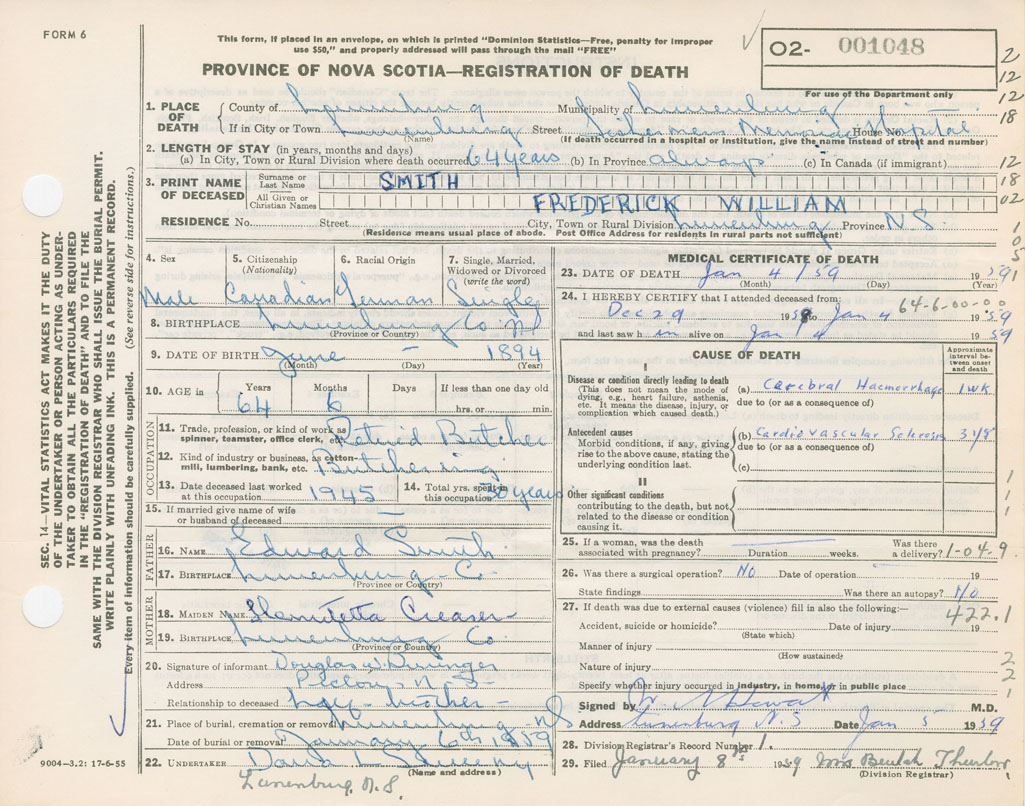 FORM 6
This form, if placed in an envelope, on which is printed "Dominion Statistics—Free, penalty for improper
use $50," and properly addressed will pass through the mail "FREE"
PROVINCE OF NOVA SCOTIA—REGISTRATION OF DEATH
O2- 001048
For use of the Department only
2
12
12
18
12
18
02
1
0
5
1
1. PLACE OF DEATH
County of Lunenburg Municipality of Lunenburg
If in City or Town Lunenburg Street Fishermens Memorial Hospital House No.
(Name) (If death occurred in a hospital or institution, give the name instead of street and number)
2. LENGTH OF STAY (in years, months and days)
(a) In City, Town or Rural Division where death occurred 64 years (b) In Province always (c) In Canada (if immigrant)
3. PRINT NAME OF DECEASED
Surname or Last Name SMITH
All Given or Christian Names FREDERICK WILLIAM
RESIDENCE No. Street City, Town or Rural Division Lunenburg Province N.S
(Residence means usual place of abode. Post Office Address for residents in rural parts not sufficient)
4. Sex
Male
5. Citizenship (Nationality)
Canadian
6. Racial Origin
German
7. Single, Married, Widowed or Divorced (write the word)
Single
8. BIRTHPLACE Lunenburg Co NS
(Province or Country)
9. DATE OF BIRTH June — 1894
(Month) (Day) (Year)
10. AGE in Years Months Days If less than one day old
64 6 hrs. or min.
OCCUPATION
11. Trade, profession, or kind of work as
spinner, teamster, office clerk, etc. Retired Butcher
12. Kind of industry or business, as cotton-
mill, lumbering, bank, etc. Butchering
13. Date deceased last worked
at this occupation 1945
14. Total yrs. spent in
this occupation 30 years
15. If married give name of wife
or husband of deceased —
FATHER
16. NAME Edward Smith
17. BIRTHPLACE Lunenburg Co.
(Province or Country)
MOTHER
18. MAIDEN NAME Henrietta Creaser
19. BIRTHPLACE Lunenburg Co
(Province or Country)
20. Signature of informant Douglas W.
Address Pictou, N S
Relationship to deceased
21. Place of burial, cremation or removal Lunenburg NS
Date of burial or removal January 6th 1959
22. UNDERTAKER
(Name and address)
Lunenburg, N.S.
9004—3.2: 17-6-55
SEC. 14—VITAL STATISTICS ACT MAKES IT THE DUTY
OF THE UNDERTAKER OR PERSON ACTING AS UNDER-
TAKER TO OBTAIN ALL THE PARTICULARS REQUIRED
IN THE "REGISTRATION OF DEATH" AND TO FILE THE
SAME WITH THE DIVISION REGISTRAR WHO SHALL ISSUE THE BURIAL PERMIT.
WRITE PLAINLY WITH UNFADING INK. THIS IS A PERMANENT RECORD.
Every item of information should be carefully supplied. (See reverse side for instructions.)
MEDICAL CERTIFICATE OF DEATH
23. DATE OF DEATH Jan 4 / 59 19 59
(Month) (Day) (Year)
24. I HEREBY CERTIFY that I attended deceased from: 64-6-00-00
Dec 29 1958 to Jan 4 19 59
and last saw h im alive on Jan 4 19 59
CAUSE OF DEATH
Approximate interval between onset and death
I
Disease or condition directly leading to death
(This does not mean the mode of
dying, e.g., heart failure, asthenia,
etc. It means the disease, injury, or
complication which caused death.)
(a) Cerebral Haemorrhage 1 wk
due to (or as a consequence of)
Antecedent causes
Morbid conditions, if any, giving
rise to the above cause, stating the
underlying condition last.
(b) Cardiovascular Sclerosis
due to (or as a consequence of)
(c)
II
Other significant conditions
contributing to the death, but not
related to the disease or condition
causing it.
1
1
1
25. If a woman, was the death
associated with pregnancy? Duration weeks. Was there a delivery?
1-04-9
26. Was there a surgical operation? NO Date of operation — 19
State findings Was there an autopsy? No
27. If death was due to external causes (violence) fill in also the following:—
422.1
Accident, suicide or homicide? Date of injury 19
(State which)
Manner of injury
(How sustained)
Nature of injury
2
2
1
Specify whether injury occurred in industry, in home, or in public place
Signed by M.D.
Address Lunenburg N.S Date Jan 5 19 59
28. Division Registrar's Record Number 1.
29. Filed January 8th 1959 Mrs Beulah Thurlow
(Division Registrar)